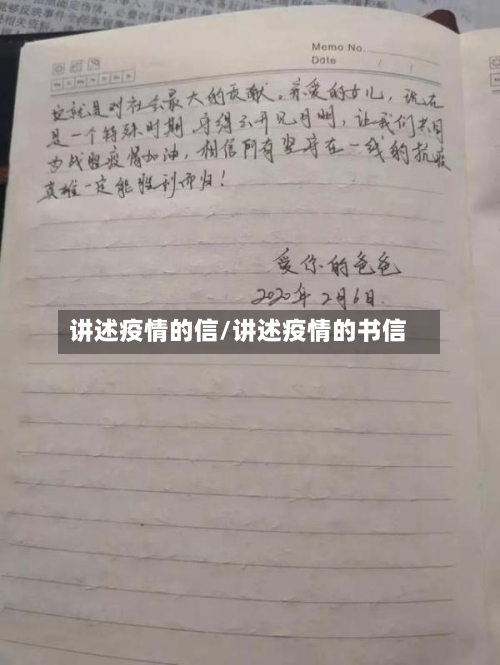 Memo No.
Date / /
这就是对社会最大的贡献。亲爱的女儿，现在
是一个特殊时期，守得云开见月明，让我们共同
为战胜疫情加油，相信所有坚守在一线的抗疫
英雄一定能胜利而归！
爱你的爸爸
2020年2月6日.
讲述疫情的信/讲述疫情的书信